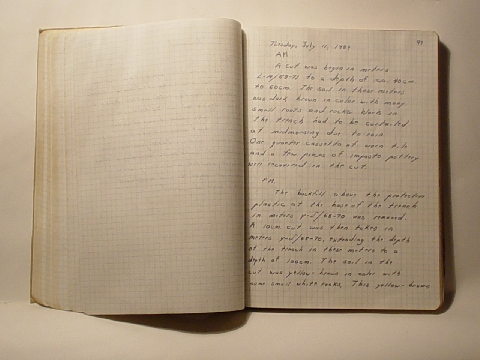 99
Tuesday, July 11, 1989
AM
A cut was begun in meters
to a depth of ca. 40c-
to 60cm. The soil in these meters
was dark brown in color with many
small roots and rocks
The trench had to be curtailed
at midmorning due to rain
One granite of worn
and a few pieces of impasto pottery
were recovered in the cut.
PM
The backfill above the protective
plastic at the base of the trench
in meters was removed.
A 10cm cut was then taken in
meters extending the depth
of the trench in these meters to a
depth of 100cm. The soil in the
cut was yellow-brown in color with
some small white rocks. This yellow-brown